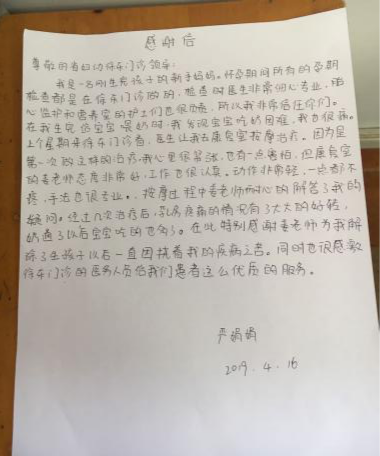 感谢后
尊敬的省妇幼保健门诊领导:
我是一名刚生完孩子的新手妈妈。怀孕期间所有的孕期
检查都是在保健门诊做的，检查时医生非常细心专业，胎
心监护和营养室的护士们也很负责，所以我非常信任你们。
在我生完给宝宝喂奶时，我发现宝宝吃奶困难，我也很痛。
上个星期来保健门诊看，医生让我去康复室按摩治疗。因为是
第一次做这样的治疗，我心里很紧张，也有一点害怕，但康复室
的老师态度非常好，工作也很认真。动作非常轻，一点都不
疼，手法也很专业。按摩过程中老师耐心的解答了我的
疑问。经过几次治疗后，乳房疼痛的情况有了大大的好转，
奶通了以后宝宝吃的也多了。在此特别感谢老师为我解
除了生孩子以后一直困扰着我的疾病之苦。同时也很感激
保健门诊的医务人员给我们患者这么优质的服务。
严娟娟
2019.4.16